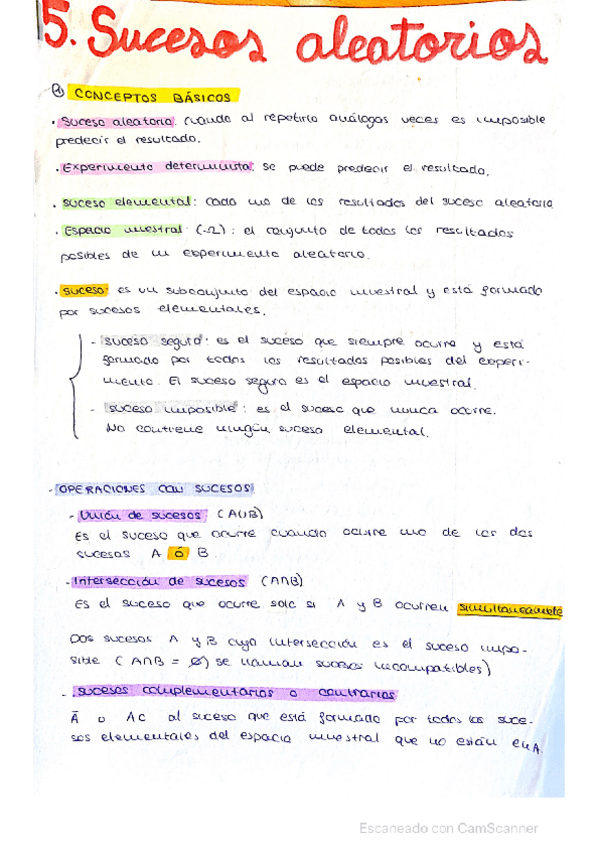 5. Sucesos aleatorios
A) CONCEPTOS BÁSICOS
· Suceso aleatorio: cuando al repetirlo análogas veces es imposible
predecir el resultado.
· Experimento determinista: se puede predecir el resultado.
· suceso elemental: cada uno de los resultados del suceso aleatorio
· Espacio muestral (Ω): el conjunto de todos los resultados
posibles de un experimento aleatorio.
· suceso: es un subconjunto del espacio muestral y está formado
por sucesos elementales.
- suceso seguro: es el suceso que siempre ocurre y está
formado por todos los resultados posibles del experi-
mento. El suceso seguro es el espacio muestral.
- suceso imposible: es el suceso que nunca ocurre.
No contiene ningún suceso elemental.
- OPERACIONES CON SUCESOS
- Unión de sucesos (A∪B)
Es el suceso que ocurre cuando ocurre uno de los dos
sucesos A ó B
- Intersección de sucesos (A∩B)
Es el suceso que ocurre solo si A y B ocurren simultáneamente
Dos sucesos A y B cuya intersección es el suceso impo-
sible (A∩B = ∅) se llaman sucesos incompatibles)
- sucesos complementarios o contrarios
Ā o Ac al suceso que está formado por todos los suce-
sos elementales del espacio muestral que no están en A.
Escaneado con CamScanner